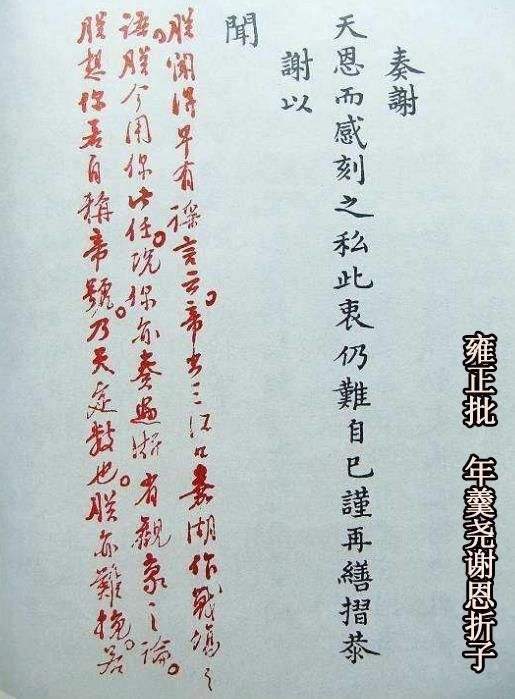 雍正批 年羹尧谢恩折子
奏謝
天恩而感刻之私此衷仍難自已謹再繕摺恭
謝以
聞
朕聞得早有謠言云。帝出三江口嘉湖作戰塲之
語。朕今用你此任。況你亦奏過浙省觀象之論。
朕想你若自稱帝號。乃天定數也。朕亦難挽。若